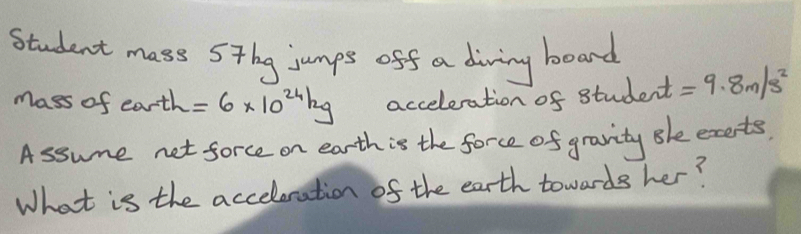 Student mass 57kg jumps off a diving board
Mass of earth = 6 × 10²⁴kg acceleration of student = 9.8m/s²
Assume net force on earth is the force of gravity she exerts.
What is the acceleration of the earth towards her?